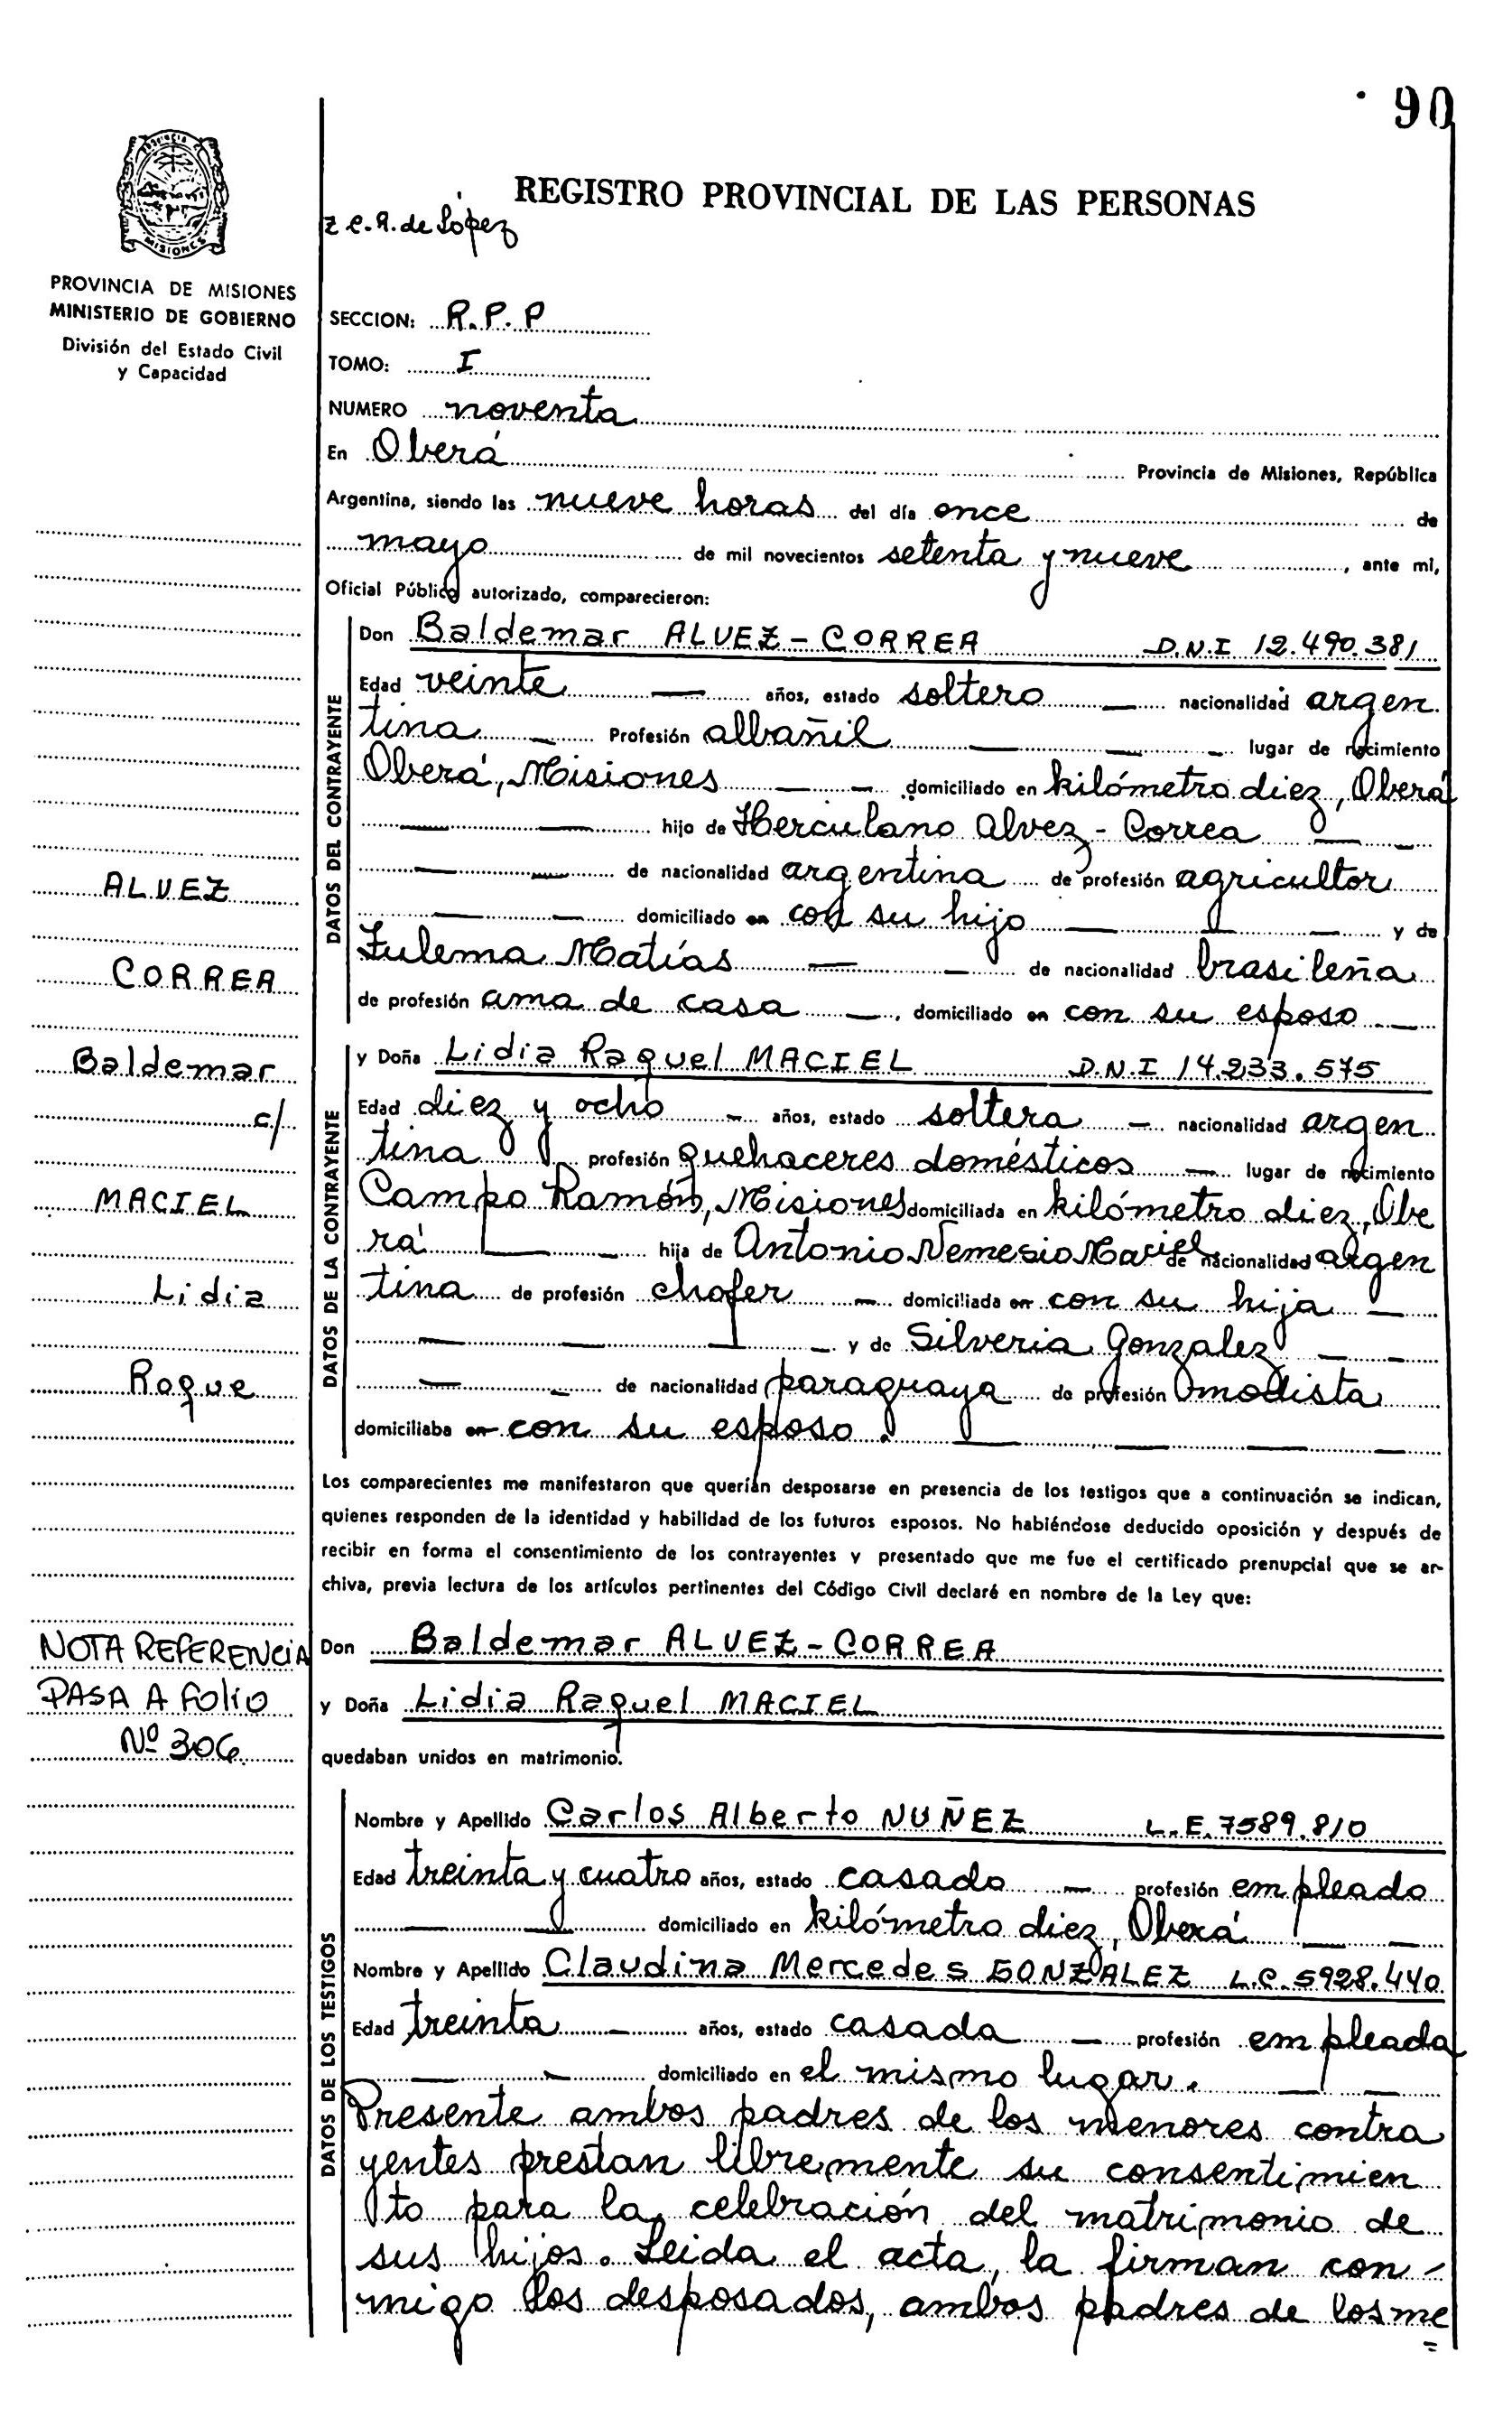 90
PROVINCIA
MISIONES
REGISTRO PROVINCIAL DE LAS PERSONAS
Z C. R. de López
PROVINCIA DE MISIONES
MINISTERIO DE GOBIERNO
División del Estado Civil
y Capacidad
SECCION: R.P.P
TOMO: I
NUMERO noventa
En Oberá Provincia de Misiones, República
Argentina, siendo las nueve horas del día once de
mayo de mil novecientos setenta y nueve, ante mi,
Oficial Público autorizado, comparecieron:
DATOS DEL CONTRAYENTE
Don Baldemar ALVEZ-CORREA D.N.I 12.490.381
Edad veinte — años, estado soltero — nacionalidad argen
tina — Profesión albañil — — — lugar de nacimiento
Oberá, Misiones — — domiciliado en kilómetro diez, Oberá
— — hijo de Herculano Alvez-Correa — —
— — de nacionalidad argentina de profesión agricultor
— — domiciliado en con su hijo — — — y de
Zulema Matías — — de nacionalidad brasileña
de profesión ama de casa —, domiciliado en con su esposo —
DATOS DE LA CONTRAYENTE
y Doña Lidia Raquel MACIEL D.N.I 14.233.575
Edad diez y ocho — años, estado soltera — nacionalidad argen
tina profesión quehaceres domésticos — lugar de nacimiento
Campo Ramón, Misiones domiciliada en kilómetro diez, Obe
rá — — hija de Antonio Nemesio Maciel de nacionalidad argen
tina de profesión chofer — domiciliada en con su hija —
— — — y de Silveria Gonzalez — —
— — de nacionalidad paraguaya de profesión modista
domiciliaba en con su esposo. — — — —
ALVEZ
CORREA
Baldemar
c/
MACIEL
Lidia
Raque
Los comparecientes me manifestaron que querían desposarse en presencia de los testigos que a continuación se indican,
quienes responden de la identidad y habilidad de los futuros esposos. No habiéndose deducido oposición y después de
recibir en forma el consentimiento de los contrayentes y presentado que me fue el certificado prenupcial que se ar-
chiva, previa lectura de los artículos pertinentes del Código Civil declaré en nombre de la Ley que:
Don Baldemar ALVEZ-CORREA
y Doña Lidia Raquel MACIEL
quedaban unidos en matrimonio.
NOTA REFERENCIA
PASA A FOLIO
Nº 306
DATOS DE LOS TESTIGOS
Nombre y Apellido Carlos Alberto NUÑEZ L.E. 7589.810
Edad treinta y cuatro años, estado casado — profesión empleado
— — domiciliado en kilómetro diez, Oberá — —
Nombre y Apellido Claudina Mercedes GONZALEZ L.C. 5928.440
Edad treinta — años, estado casada — profesión empleada
— — domiciliado en el mismo lugar. — —
Presente ambos padres de los menores contra
yentes prestan libremente su consentimien
to para la celebración del matrimonio de
sus hijos. Leida el acta, la firman con-
migo los desposados, ambos padres de los me
=